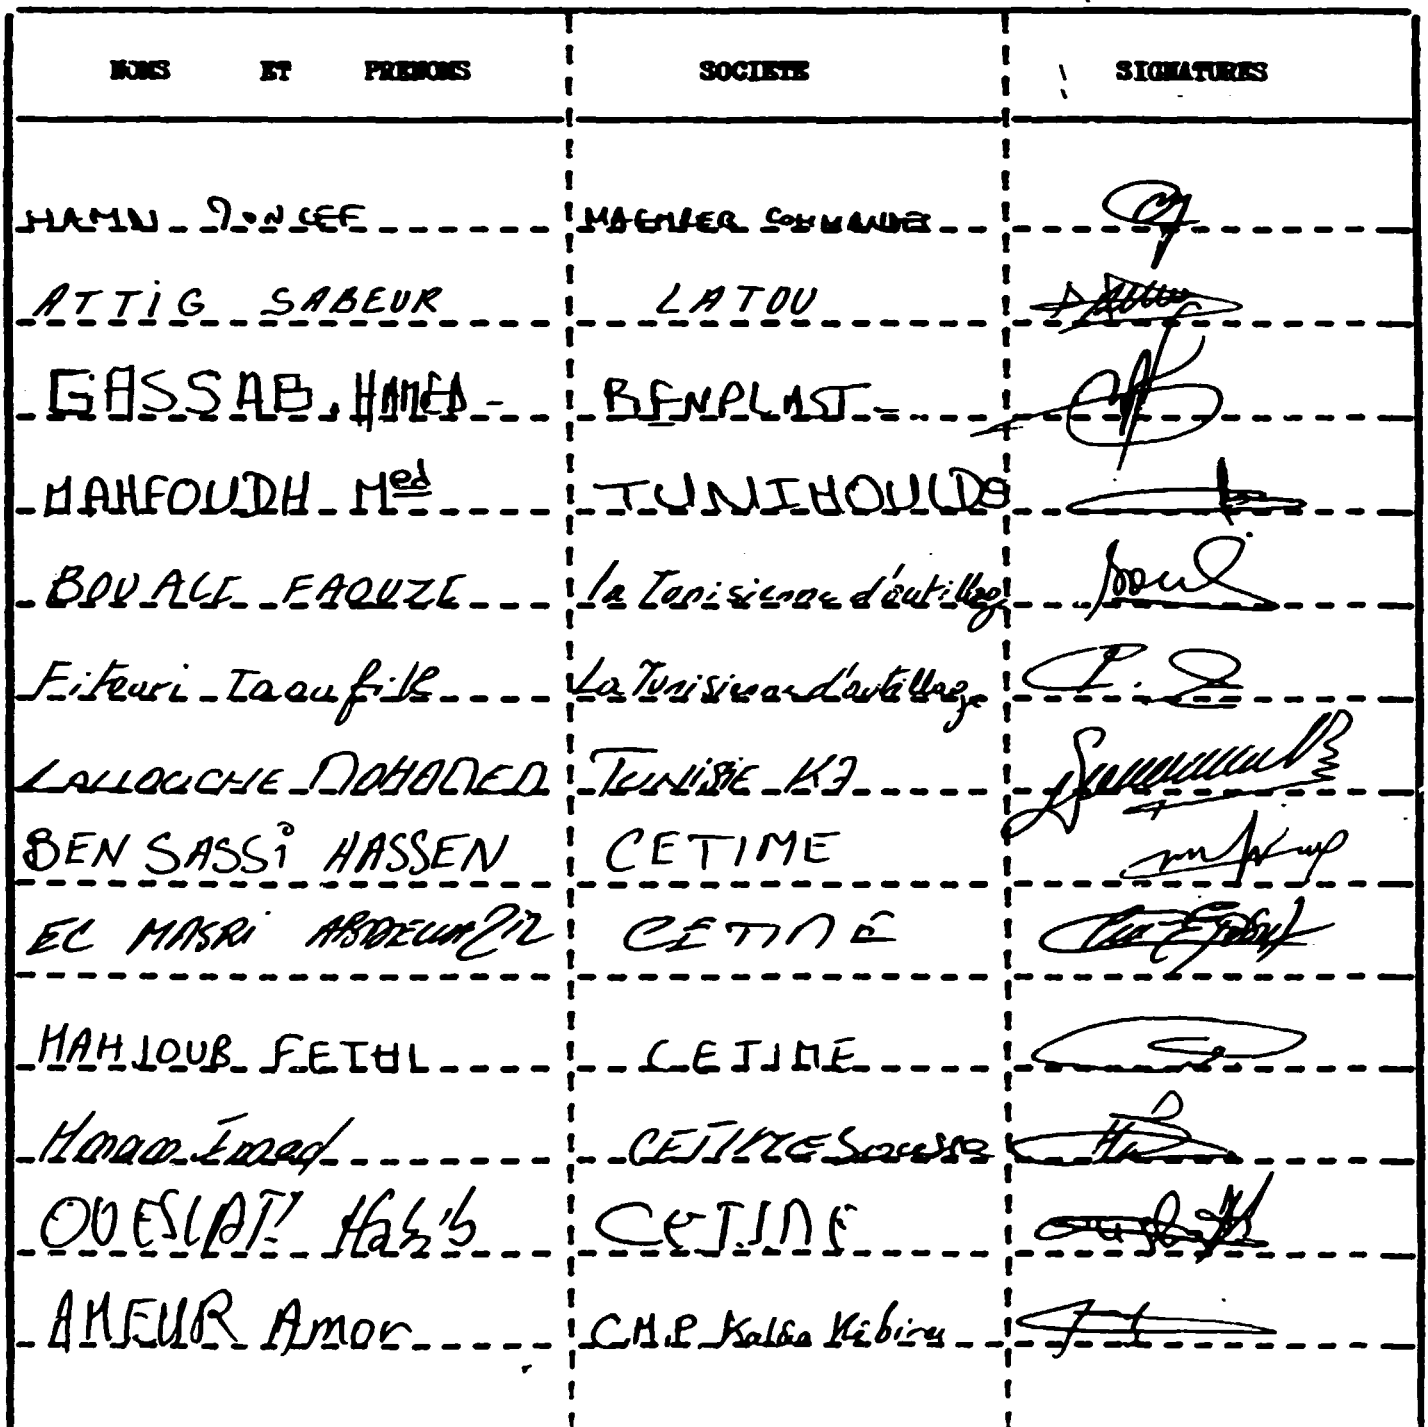 NOMS ET PRENOMS SOCIETE SIGNATURES
HAMN MONCEF
ATTIG SABEUR LATOU
GASSAB HAMED - BENPLAST -
MAHFOUDH Med TUNIMOULDS
BOUALI FAOUZI la Tunisienne d'outillage
Fitouri Taoufik La Tunisienne d'outillage
LALLOUCHE MOHAMED TUNISIE K7
BEN SASSi HASSEN CETIME
EL MASRi CETIME
MAHJOUB FETHI CETIME
Imed CETIME Sousse
OUESLATI Habib CETIME
AMEUR Amor C.M.P Kalâa Kébira